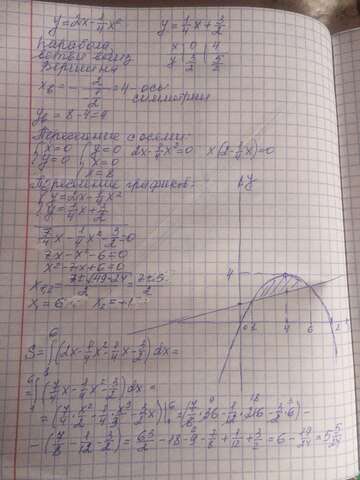 y=2x-1/4x²   y=1/4x+3/2
Парабола,   x | 0 | 4
ветви вниз   y | 3/2 | 5/2
Вершина
x₆=-2/(-1/2)=4-ось
симметрии
y₆=8-4=4
Пересечение с осями:
{x=0 {y=0 2x-1/4x²=0 x(2-1/4x)=0
{y=0 {x=0
{x=8
Пересечение графиков:
{y=2x-1/4x²
{y=1/4x+3/2
7/4x-1/4x²-3/2=0
7x-x²-6=0
x²-7x+6=0
x₁,₂=(7±√49-24)/2=(7±5)/2
x₁=6   x₂=1
y
4
0 2 4 6
x
S=∫(2x-1/4x²-1/4x-3/2)dx=
=∫(7/4x-1/4x²-3/2)dx=
=(7/4·x²/2-1/4·x³/3-3/2x)|=(7/8·36-1/12·216-3/2·6)-
-(7/8-1/12-3/2)=63/2-18-9-7/8+1/12+3/2=6-19/24=5 5/24